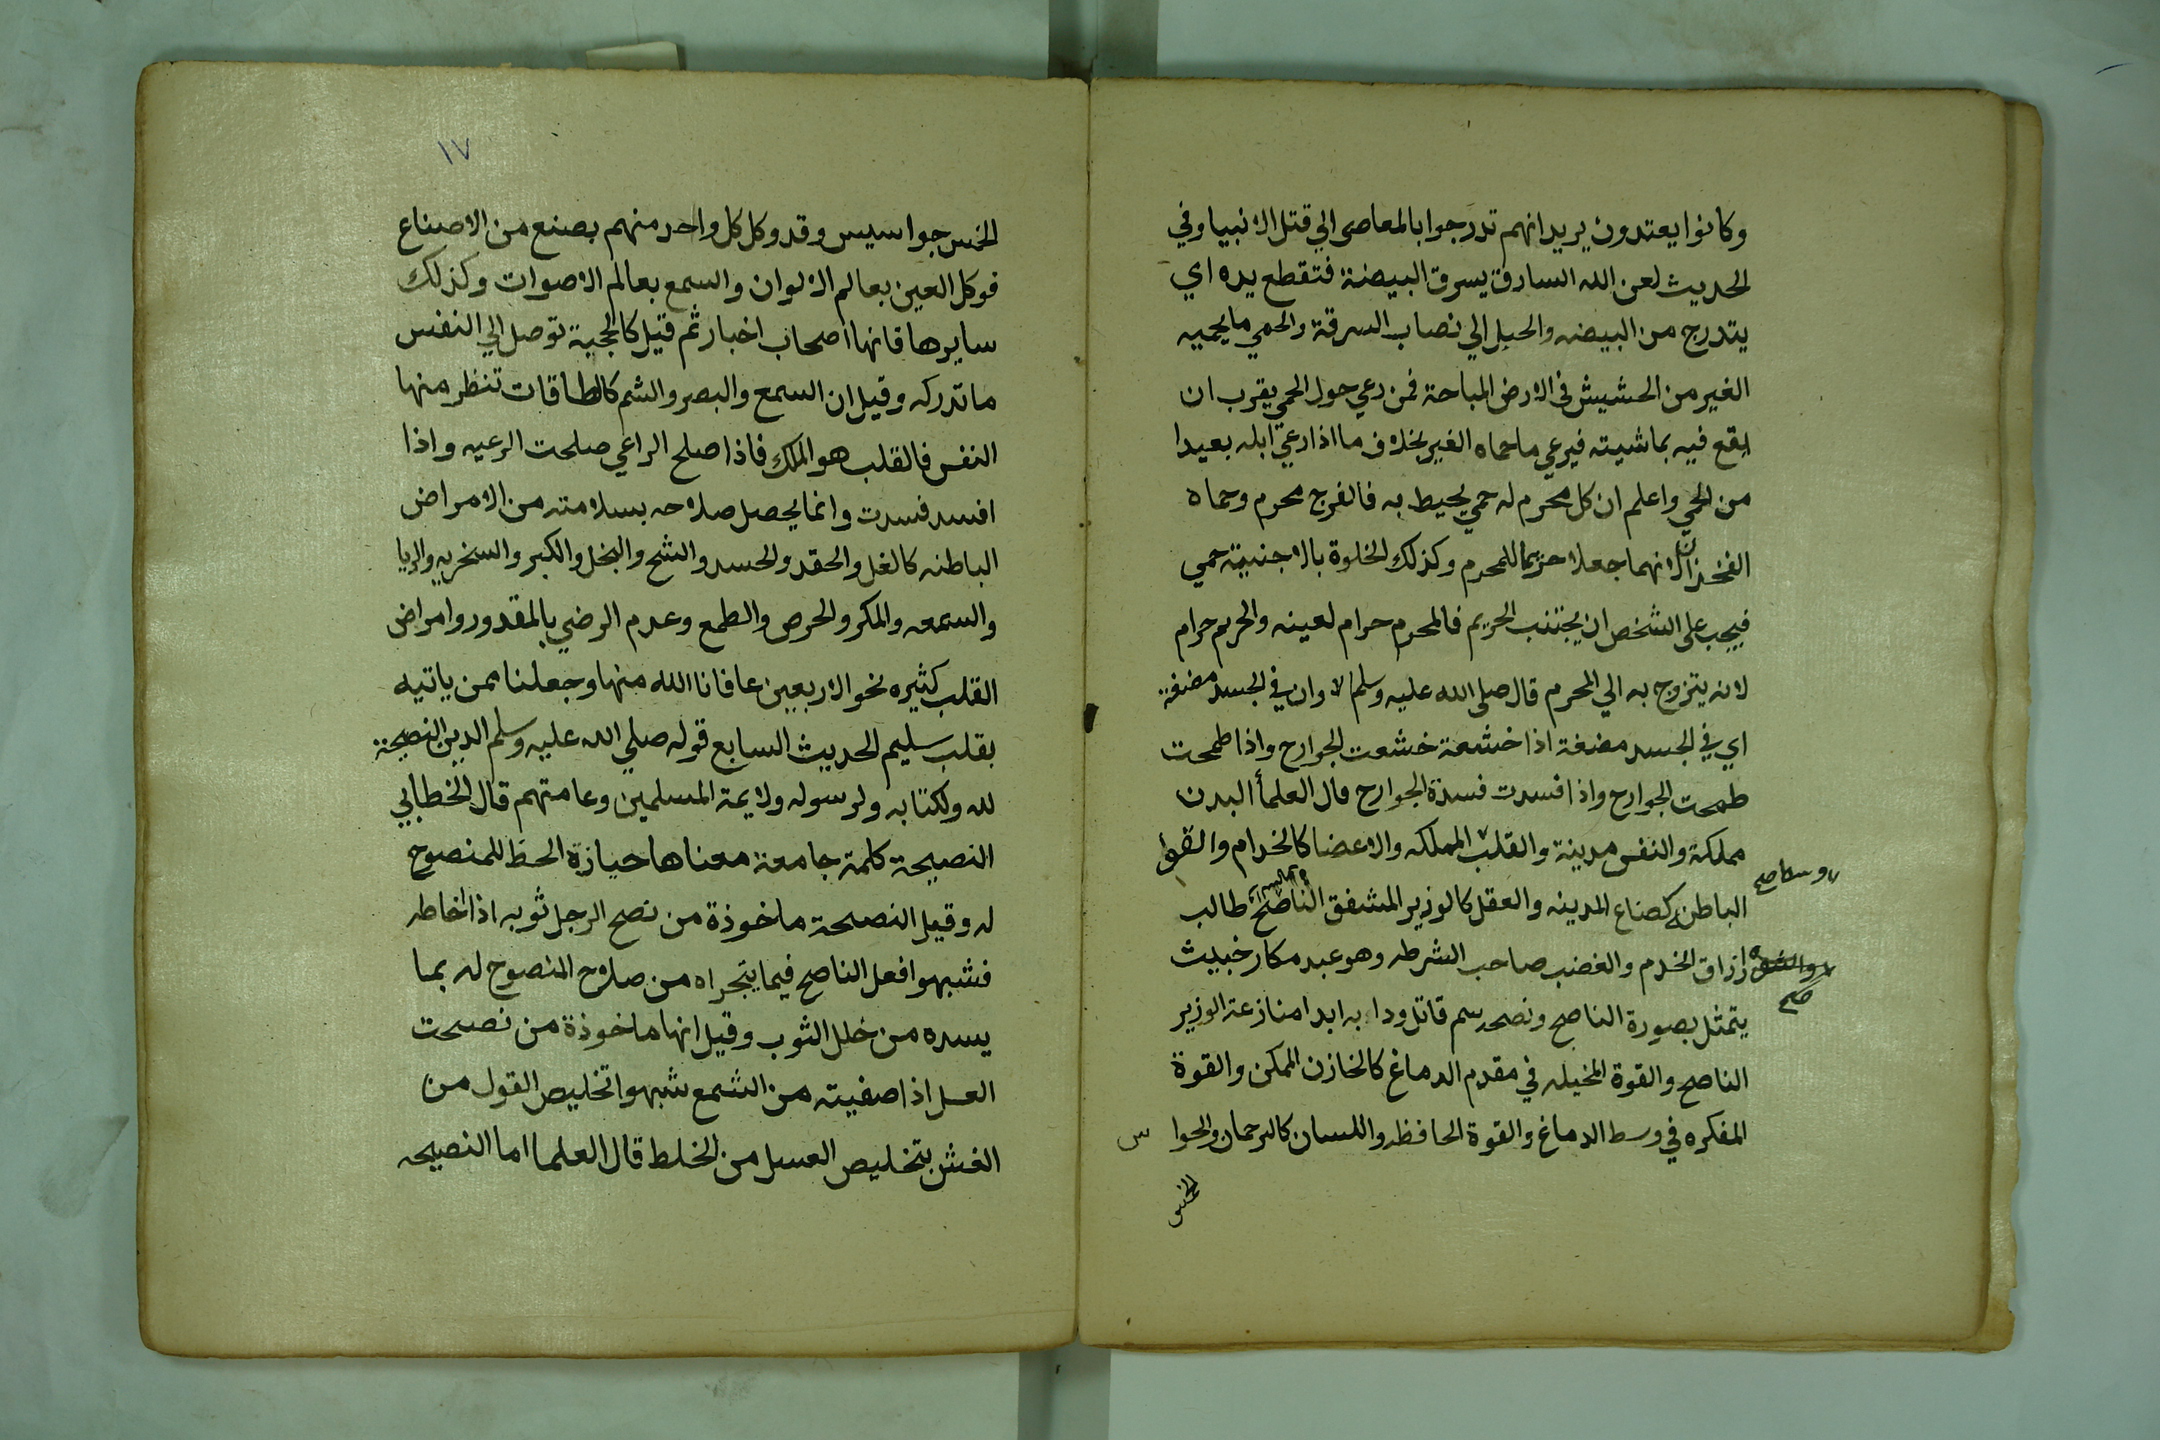 وكانوا يعتدون يريد انهم تدرجوا بالمعاصى الي قتل الانبيا وفي
الحديث لعن الله السارق يسرق البيضة فتقطع يده اي
يتدرج من البيضه والحبل الي نصاب السرقة والحمي ما يحميه
الغير من الحشيش في الارض المباحة فمن رعي حول الحمي يقرب ان
يقع فيه بماشيته فيرعي ما حماه الغير بخلاف ما اذا رعي ابله بعيدا
من الحمي واعلم ان كل محرم له حمي يحيط به فالفرج محرم وحماه
الفخذان لانهما جعلا حريما للمحرم وكذلك الخلوة بالاجنبية حمي
فيجب على الشخص ان يجتنب الحريم فالمحرم حرام لعينه والحريم حرام
لانه يتزوج به الي المحرم قال صلى الله عليه وسلم الا وان في الجسد مضغة
اي في الجسد مضغة اذا خشعة خشعت الجوارح واذا طمحت
طمحت الجوارح واذا فسدت فسدة الجوارح قال العلمأ البدن
مملكة والنفس مدينة والقلب المملكه والاعضا كالخدام والقوا
الباطنه كصناع المدينه والعقل كالوزير المشفق الناصح طالب
ارزاق الخدم والغضب صاحب الشرطه وهو عبد مكار خبيث
صح
يتمثل بصورة الناصح ونصحه سم قاتل ودابه ابدا منازعة الوزير
الناصح والقوة المخيله في مقدم الدماغ كالخازن الممكن والقوة
المفكره في وسط الدماغ والقوة الحافظه واللسان كالترجمان والحوا س
الخمس
١٧
الخمس جواسيس وقد وكل كل واحد منهم بصنع من الاصناع
فوكل العين بعالم الالوان والسمع بعالم الاصوات وكذلك
سايرها فانها اصحاب اخبار ثم قيل كالحجبة توصل الي النفس
ما تدركه وقيل ان السمع والبصر والشم كالطاقات تنظر منها
النفس فالقلب هو الملك فاذا صلح الراعي صلحت الرعيه واذا
افسد فسدت وانما يحصل صلاحه بسلامته من الامراض
الباطنه كالغل والحقد والحسد والشح والبخل والكبر والسخريه والريا
والسمعه والمكر والحرص والطمع وعدم الرضي بالمقدور وامراض
القلب كثيره نحو الاربعين عافانا الله منها وجعلنا ممن ياتيه
بقلب سليم الحديث السابع قوله صلي الله عليه وسلم الدين النصيحة
لله ولكتابه ولرسوله ولايمة المسلمين وعامتهم قال الخطابي
النصيحة كلمة جامعة معناها حيازة الحظ للمنصوح
له وقيل النصيحة ماخوذة من نصح الرجل ثوبه اذا خاطه
فشبهوا فعل الناصح فيما يتجراه من صلاح المنصوح له بما
يسده من خلل الثوب وقيل انها ماخوذة من نصحت
العسل اذا صفيته من الشمع شبهوا تخليص القول من
الغش بتخليص العسل من الخلط قال العلما اما النصيحه